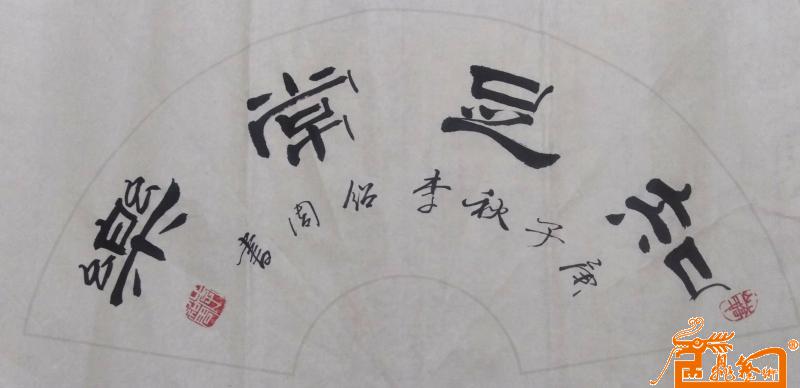 知足常樂
庚子秋李绍周書